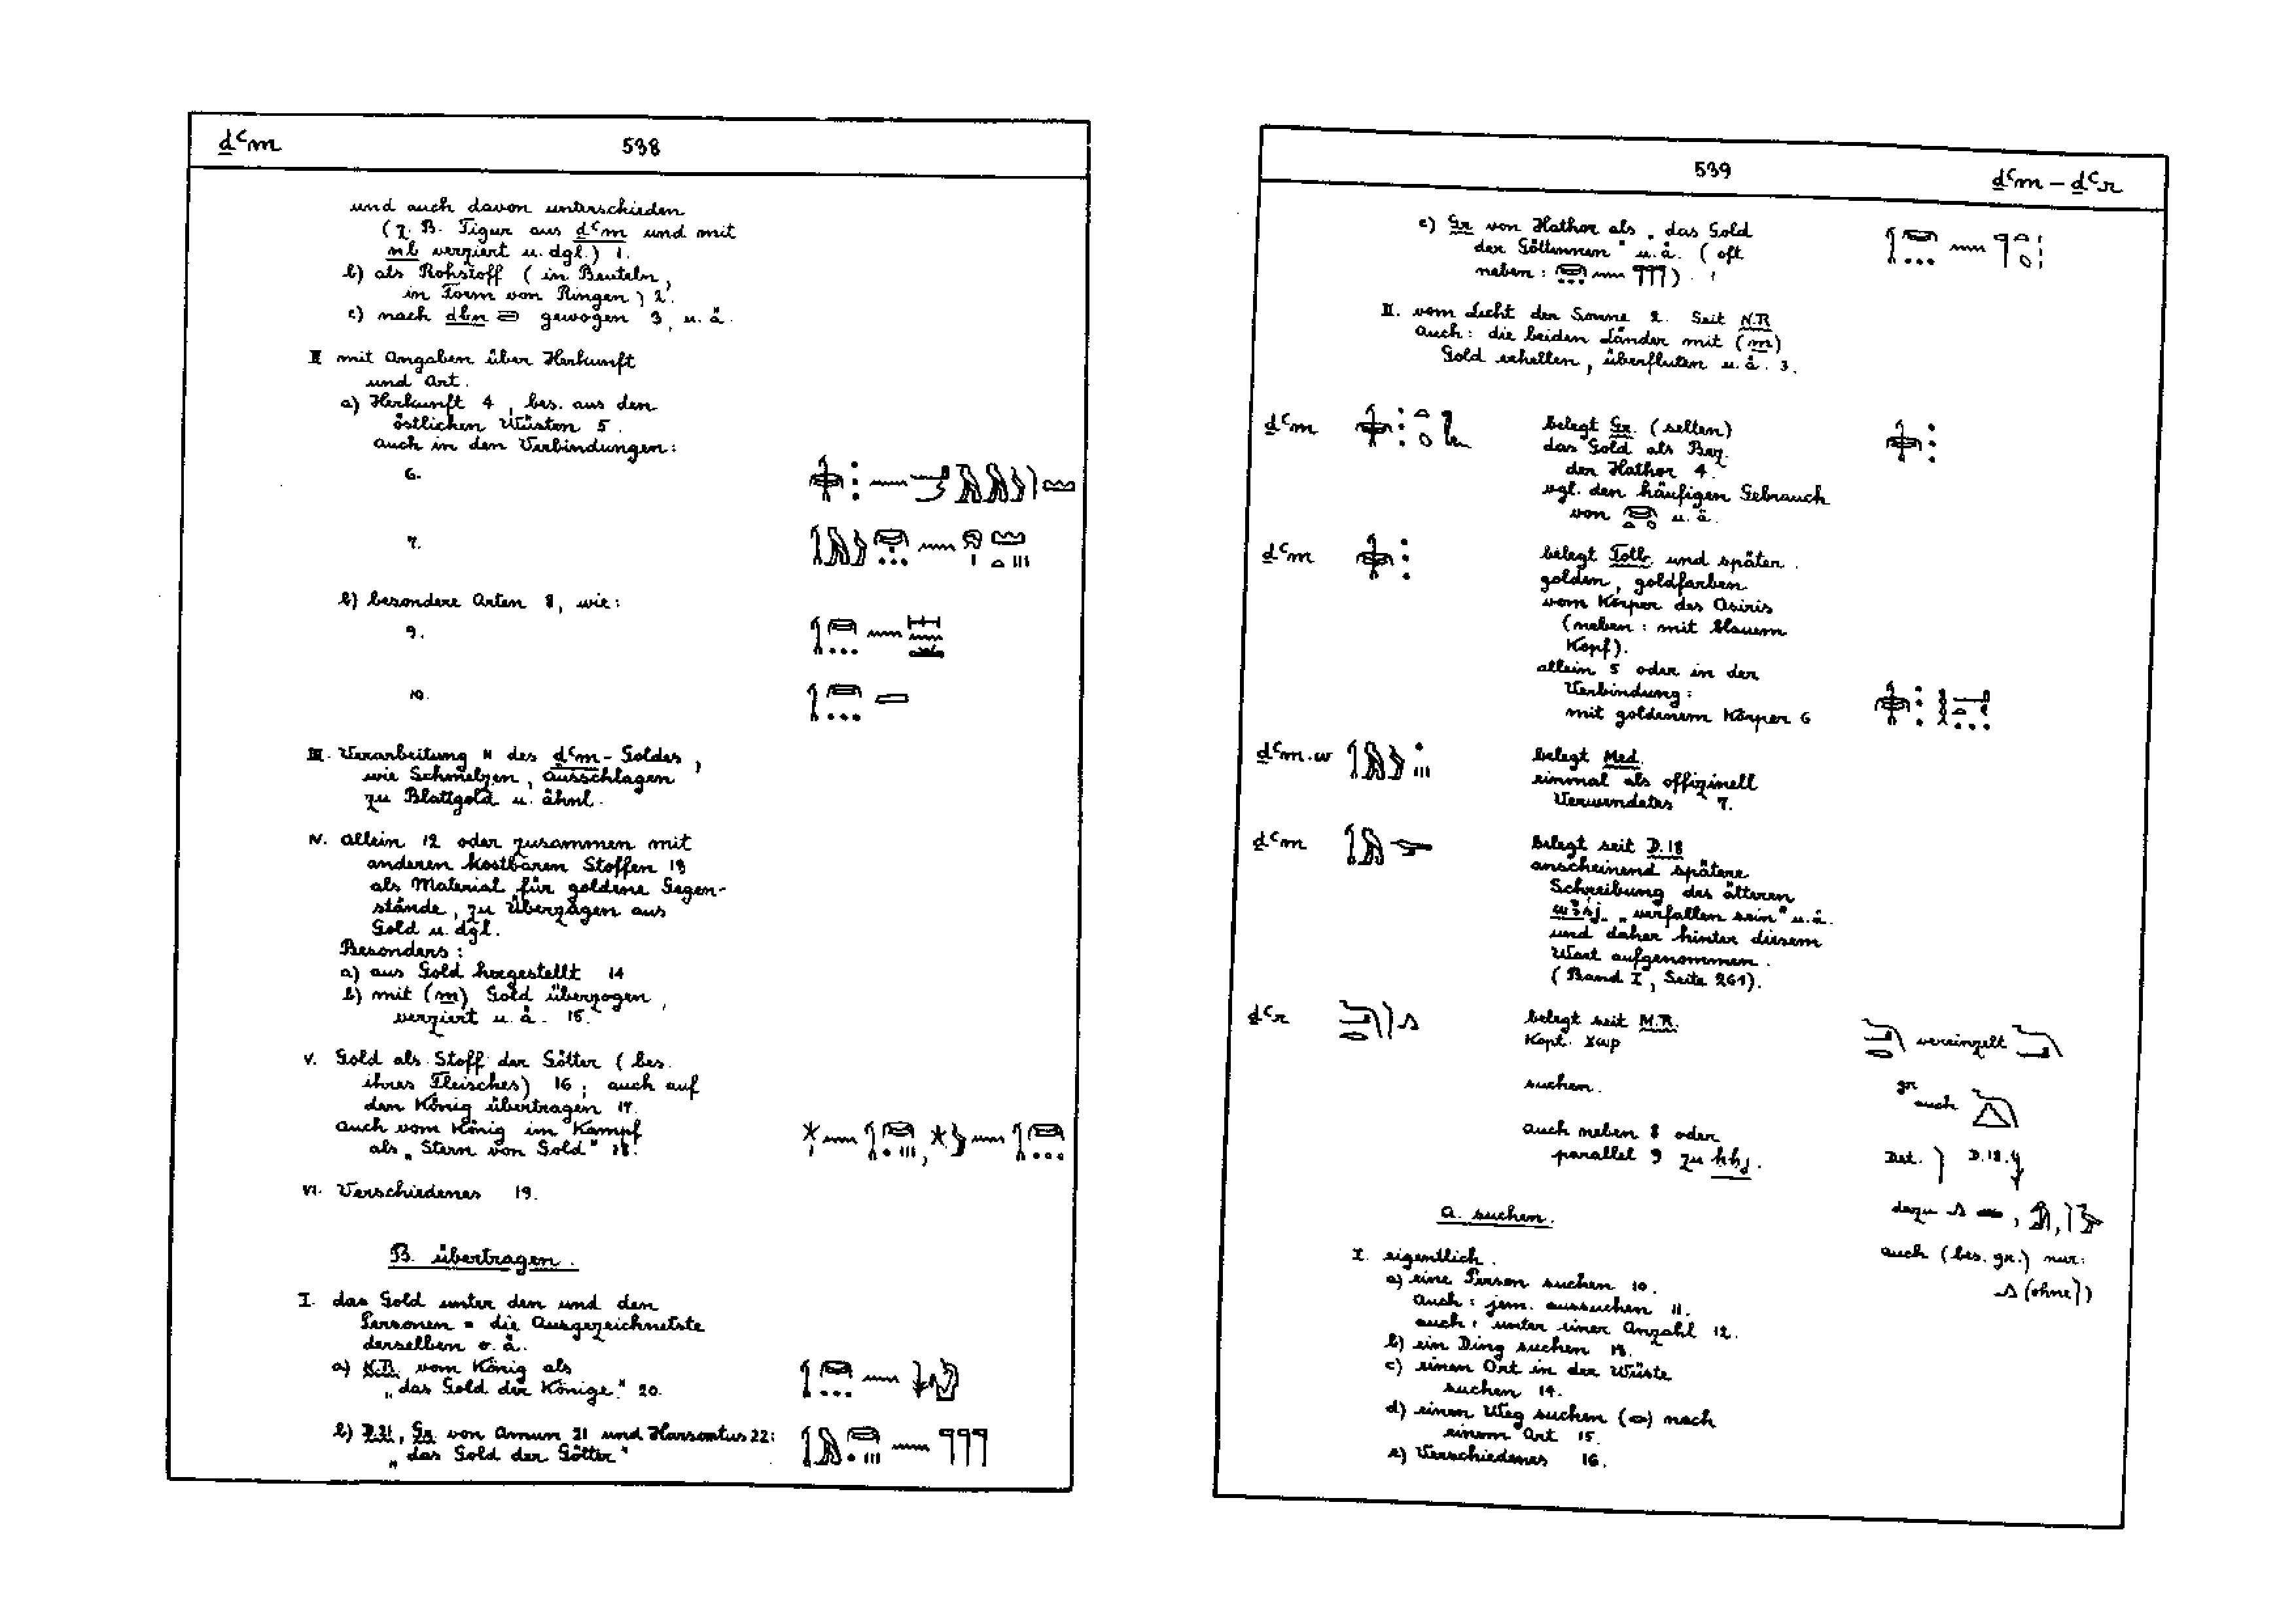 ḏꜥm 538
und auch davon unterschieden
(z. B. Figur aus ḏꜥm und mit
nb verziert u. dgl.) 1.
b) als Rohstoff (in Beuteln,
in Form von Ringen) 2.
c) nach dbn gewogen 3, u. ä.
II mit Angaben über Herkunft
und Art.
a) Herkunft 4, bes. aus den
östlichen Wüsten 5.
auch in den Verbindungen:
6.
7.
b) besondere Arten 8, wie:
9.
10.
III. Verarbeitung 11 des ḏꜥm-Goldes,
wie Schmelzen, Ausschlagen
zu Blattgold u. ähnl.
IV. allein 12 oder zusammen mit
anderen kostbaren Stoffen 13
als Material für goldene Gegen-
stände, zu Überzügen aus
Gold u. dgl.
Besonders:
a) aus Gold hergestellt 14
b) mit (m) Gold überzogen,
verziert u. ä. 15.
V. Gold als Stoff der Götter (bes.
ihres Fleisches) 16; auch auf
den König übertragen 17.
auch vom König im Kampf
als „Stern von Gold" 18.
VI. Verschiedenes 19.
B. übertragen.
I. das Gold unter den und den
Personen = die Ausgezeichnetste
derselben o. ä.
a) N.R. vom König als
„das Gold der Könige" 20.
b) D.21, Gr. von Amun 21 und Harsomtus 22:
„das Gold der Götter"
539 ḏꜥm – ḏꜥr
c) Gr. von Hathor als „das Gold
der Göttinnen" u. ä. (oft
neben: ). 1
II. vom Licht der Sonne 2. Seit N.R.
auch: die beiden Länder mit (m)
Gold erhellen, überfluten u. ä. 3.
ḏꜥm belegt Gr. (selten)
das Gold als Bez.
der Hathor 4.
vgl. den häufigen Gebrauch
von u. ä.
ḏꜥm belegt Totb. und später.
golden, goldfarben
vom Körper des Osiris
(neben: mit blauem
Kopf).
allein 5 oder in der
Verbindung:
mit goldenem Körper 6
ḏꜥm.w belegt Med.
einmal als offizinell
Verwendetes 7.
ḏꜥm belegt seit D.18
anscheinend spätere
Schreibung des älteren
wꜣsj „verfallen sein" u. ä.
und daher hinter diesem
Wort aufgenommen.
(Band I, Seite 261).
ḏꜥr belegt seit M.R. vereinzelt
Kopt. ϫⲱⲣ
suchen. gr. auch
auch neben 8 oder
parallel 9 zu ḥḥj. Det. D.18.
dazu
a. suchen.
I. eigentlich. auch (bes. gr.) nur:
a) eine Person suchen 10. (ohne )
auch: jem. aussuchen 11.
auch: unter einer Anzahl 12.
b) ein Ding suchen 13.
c) einen Ort in der Wüste
suchen 14.
d) einen Weg suchen ( ) nach
einem Ort 15.
e) Verschiedenes 16.